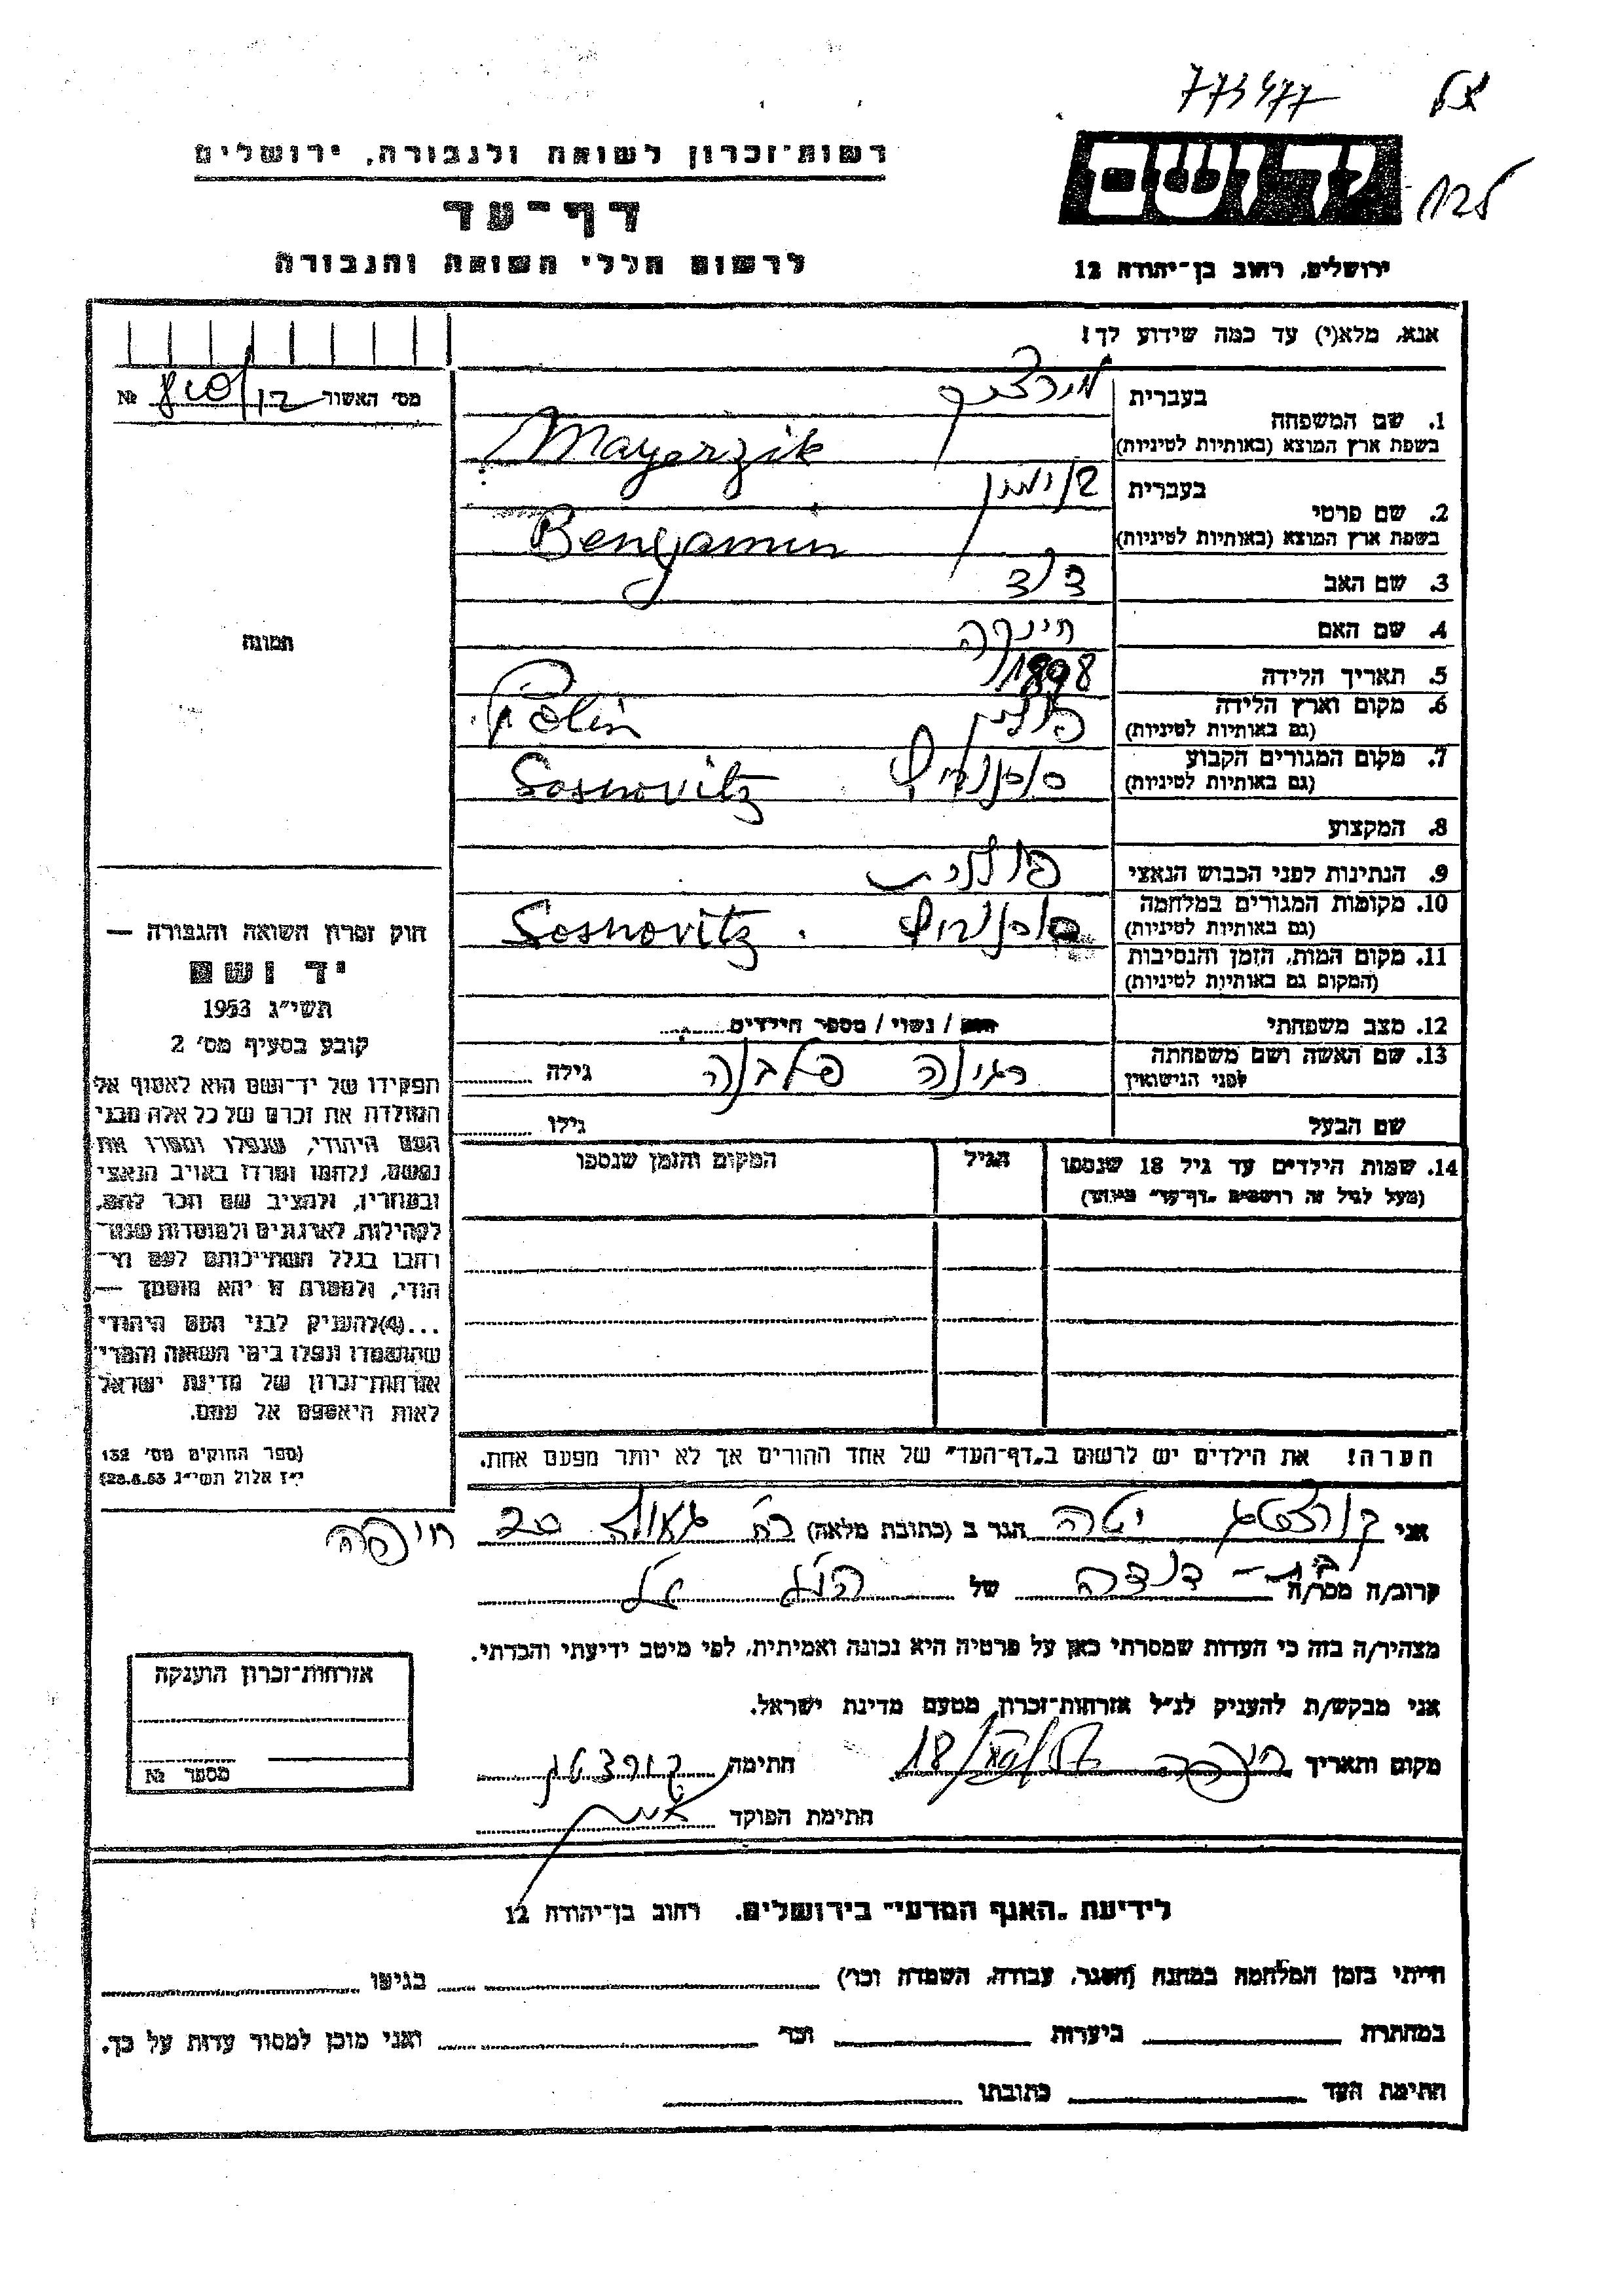 773477
רשות־זכרון לשואה ולגבורה, ירושלים
יד ושם
דף־עד
לרשום חללי השואה והגבורה
ירושלים, רחוב בן־יהודה 12
אנא, מלא(י) עד כמה שידוע לך!
מס׳ האשור № 840/12
1. שם המשפחה בעברית
בשפת ארץ המוצא (באותיות לטיניות) Mayerzik
2. שם פרטי בעברית בנימין
בשפת ארץ המוצא (באותיות לטיניות) Benyamin
3. שם האב דוד
4. שם האם
5. תאריך הלידה 1898
6. מקום וארץ הלידה פולין Polin
(גם באותיות לטיניות)
7. מקום המגורים הקבוע סוסנוביץ Sosnovitz
(גם באותיות לטיניות)
8. המקצוע
9. הנתינות לפני הכבוש הנאצי פולנית
10. מקומות המגורים במלחמה סוסנוביץ Sosnovitz
(גם באותיות לטיניות)
11. מקום המות, הזמן והנסיבות
(המקום גם באותיות לטיניות)
12. מצב משפחתי רווק / נשוי / מספר הילדים
13. שם האשה ושם משפחתה רגינה גילה
לפני הנישואין
שם הבעל גילו
14. שמות הילדים עד גיל 18 שנספו הגיל המקום והזמן שנספו
(מעל לגיל זה רושמים "דף־עד" מיוחד)
הערה! את הילדים יש לרשום ב"דף־העד" של אחד ההורים אך לא יותר מפעם אחת.
תמונה
חוק זכרון השואה והגבורה —
יד ושם
תשי״ג 1953
קובע בסעיף מס׳ 2
תפקידו של יד־ושם הוא לאסוף אל
המולדת את זכרם של כל אלה מבני
העם היהודי, שנפלו ומסרו את
נפשם, נלחמו ומרדו באויב הנאצי
ובעוזריו, ולהציב שם וזכר להם,
לקהילות, לארגונים ולמוסדות שנח־
רבו בגלל השתייכותם לעם הי־
הודי, ולמטרה זו יהא מוסמך —
...(4)להעניק לבני העם היהודי
שהושמדו ונפלו בימי השואה והמרי
אזרחות־זכרון של מדינת ישראל
לאות היאספם אל עמם.
(ספר החוקים מס׳ 132
י״ז אלול תשי״ג 28.8.53)
אני יטה הגר ב (כתובת מלאה) רח׳ גאולה 20 חיפה
קרוב/ה מכר/ה בת־דודה של הנ״ל
מצהיר/ה בזה כי העדות שמסרתי כאן על פרטיה היא נכונה ואמיתית, לפי מיטב ידיעתי והכרתי.
אני מבקש/ת להעניק לנ״ל אזרחות־זכרון מטעם מדינת ישראל.
מקום ותאריך חיפה חתימה
חתימת הפוקד
אזרחות־זכרון הוענקה
מספר №
לידיעת "האגף המדעי" בירושלים. רחוב בן־יהודה 12
הייתי בזמן המלחמה במחנה (הסגר, עבודה, השמדה וכו׳) בגיטו
במחתרת ביערות וכו׳ ואני מוכן למסור עדות על כך.
חתימת העד כתובתו